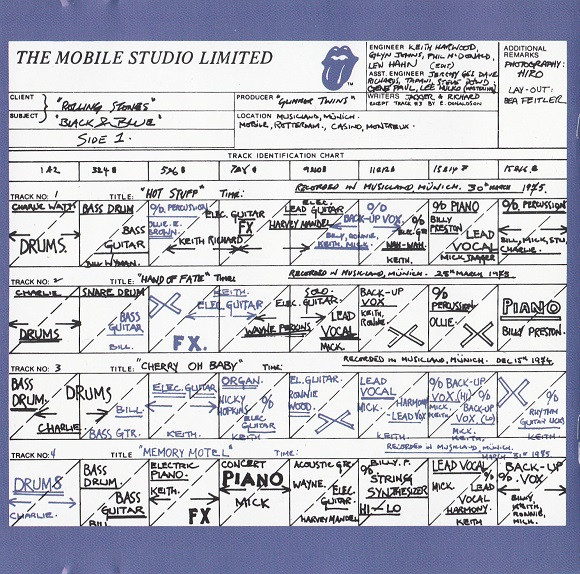 THE MOBILE STUDIO LIMITED
TM
ENGINEER KEITH HARWOOD,
GLYN JOHNS, PHIL McDONALD,
LEW HAHN (EDIT)
ASST. ENGINEER JEREMY GEE DAVE
RICHARDS, TAPANI, STEVE DOWD,
GENE PAUL, LEE HULKO (MASTERING)
WRITERS JAGGER & RICHARD
EXCEPT TRACK #3 BY E. DONALDSON
ADDITIONAL
REMARKS
PHOTOGRAPHY:
HIRO
LAY-OUT:
BEA FEITLER.
CLIENT "ROLLING STONES"
SUBJECT "BLACK & BLUE"
SIDE 1.
PRODUCER "GLIMMER TWINS"
LOCATION MUSICLAND, MÜNICH.
MOBILE, ROTTERDAM., CASINO, MONTREUX.
TRACK IDENTIFICATION CHART
1 & 2 3 & 4 5 & 6 7 & 8 9 & 10 11 & 12 13 & 14 15 & 16
TRACK NO. 1 TITLE: "HOT STUFF" TIME: RECORDED IN MUSICLAND, MÜNICH. 30th MARCH 1975.
CHARLIE WATTS
DRUMS.
BASS DRUM
BASS
GUITAR
BILL WYMAN.
% PERCUSSION
OLLIE E.
BROWN.
ELEC. GUITAR
KEITH RICHARD
FX
ELEC.
LEAD GUITAR
HARVEY MANDEL
%
BACK-UP VOX
BILLY, RONNIE,
KEITH, MICK.
%
ELEC. GTR
WAH-WAH
KEITH.
% PIANO
BILLY
PRESTON
LEAD
VOCAL
MICK JAGGER
% PERCUSSION
BILL, MICK, STU,
CHARLIE.
TRACK NO. 2 TITLE: "HAND OF FATE" TIME: RECORDED IN MUSICLAND, MÜNICH. 25th MARCH 1975.
CHARLIE
DRUMS
SNARE DRUM
BASS
GUITAR
BILL.
FX.
KEITH.
ELEC GUITAR
WAYNE PERKINS
SOLO
ELEC. GUITAR.
LEAD
VOCAL
MICK.
BACK-UP
VOX
KEITH,
RONNIE.
%
PERCUSSION
OLLIE.
PIANO
BILLY PRESTON.
TRACK NO. 3 TITLE: "CHERRY OH BABY" TIME: RECORDED IN MUSICLAND, MÜNICH. DEC 15th 1974.
BASS
DRUM.
DRUMS
CHARLIE
BILL
BASS GTR.
ELEC GUITAR
KEITH
ORGAN.
NICKY
HOPKINS
%
ELEC
GUITAR
KEITH
EL. GUITAR.
RONNIE
WOOD.
LEAD
VOCAL
MICK.
HARMONY
LEAD VOX
KEITH
% BACK-UP
VOX (HI) %
MICK, KEITH.
BACK-UP
VOX (LO)
MICK.
KEITH.
%
RHYTHM
GUITAR
KEITH
TRACK NO. 4 TITLE: "MEMORY MOTEL" TIME: RECORDED IN MUSICLAND, MÜNICH.
MARCH 31st 1975.
DRUMS
CHARLIE.
BASS
DRUM
BASS
GUITAR
BILL
ELECTRIC
PIANO.
KEITH.
FX
CONCERT
PIANO
MICK
ACOUSTIC GTR
WAYNE.
ELEC
GUITAR.
HARVEY MANDEL
BILLY. P.
%
STRING
SYNTHESIZER
HI - LO
LEAD VOCAL
MICK.
LEAD
VOCAL
HARMONY.
KEITH
BACK-UP
% VOX.
BILLY,
KEITH,
RONNIE,
MICK.